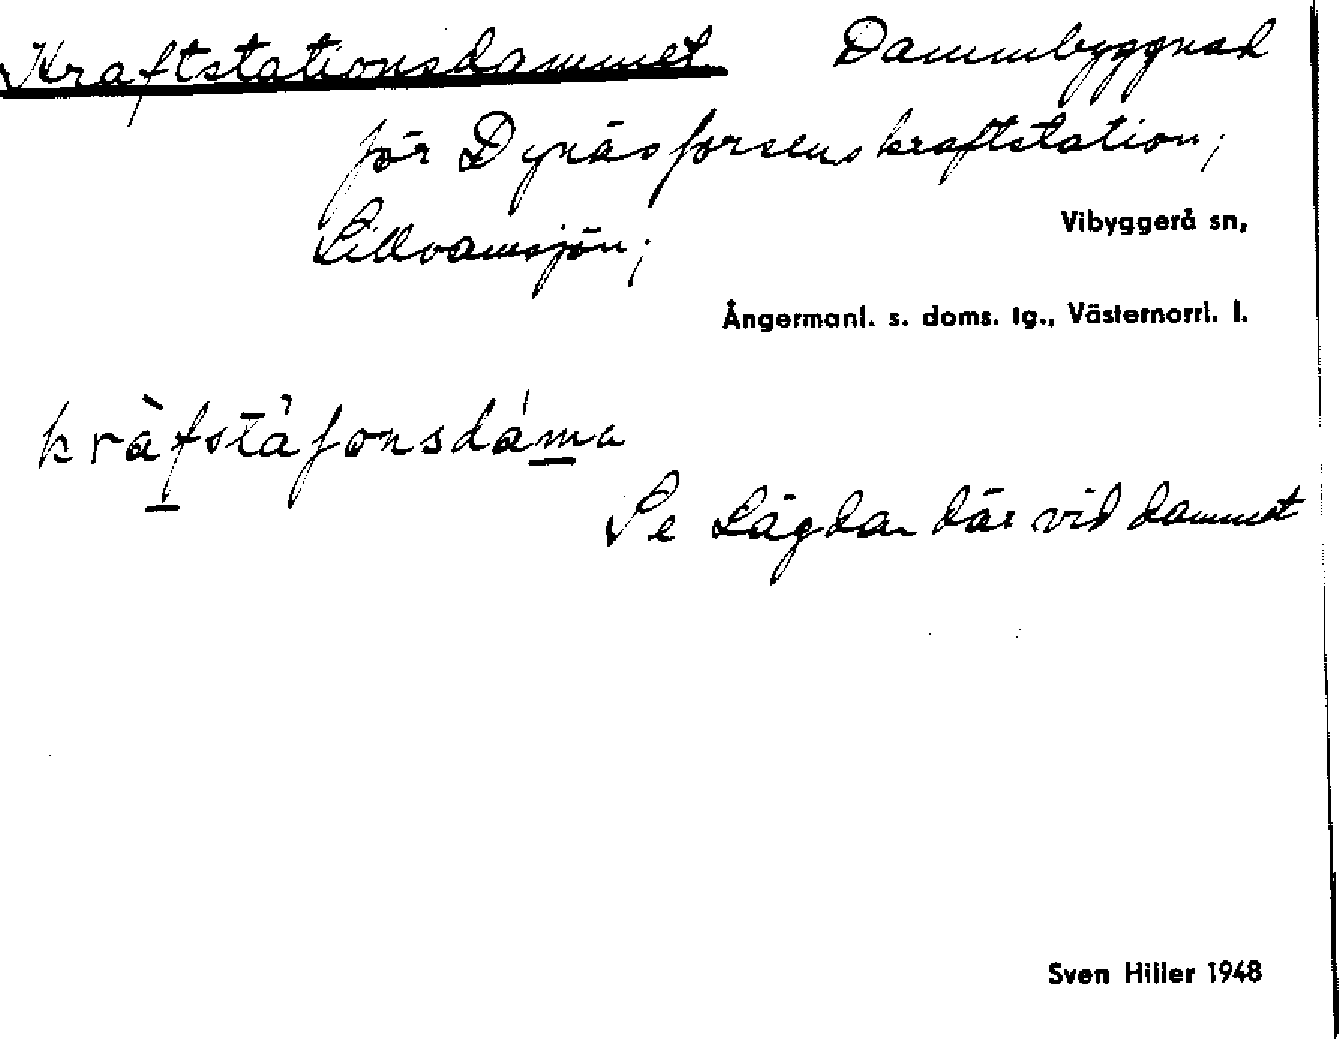 Kraftstationsdammet Dammbyggnad
för Dynäsforsens kraftstation;
Lillvamsjön;
Vibyggerå sn,
Ångermanl. s. doms. tg., Västernorrl. l.
kràfstàʃonsdáma
Se Lägdan där vid dammet
Sven Hiller 1948